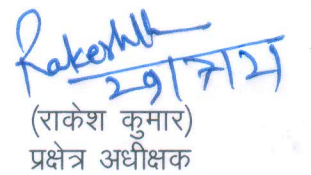 Rakesh
29/7/21
(राकेश कुमार)
प्रक्षेत्र अधीक्षक